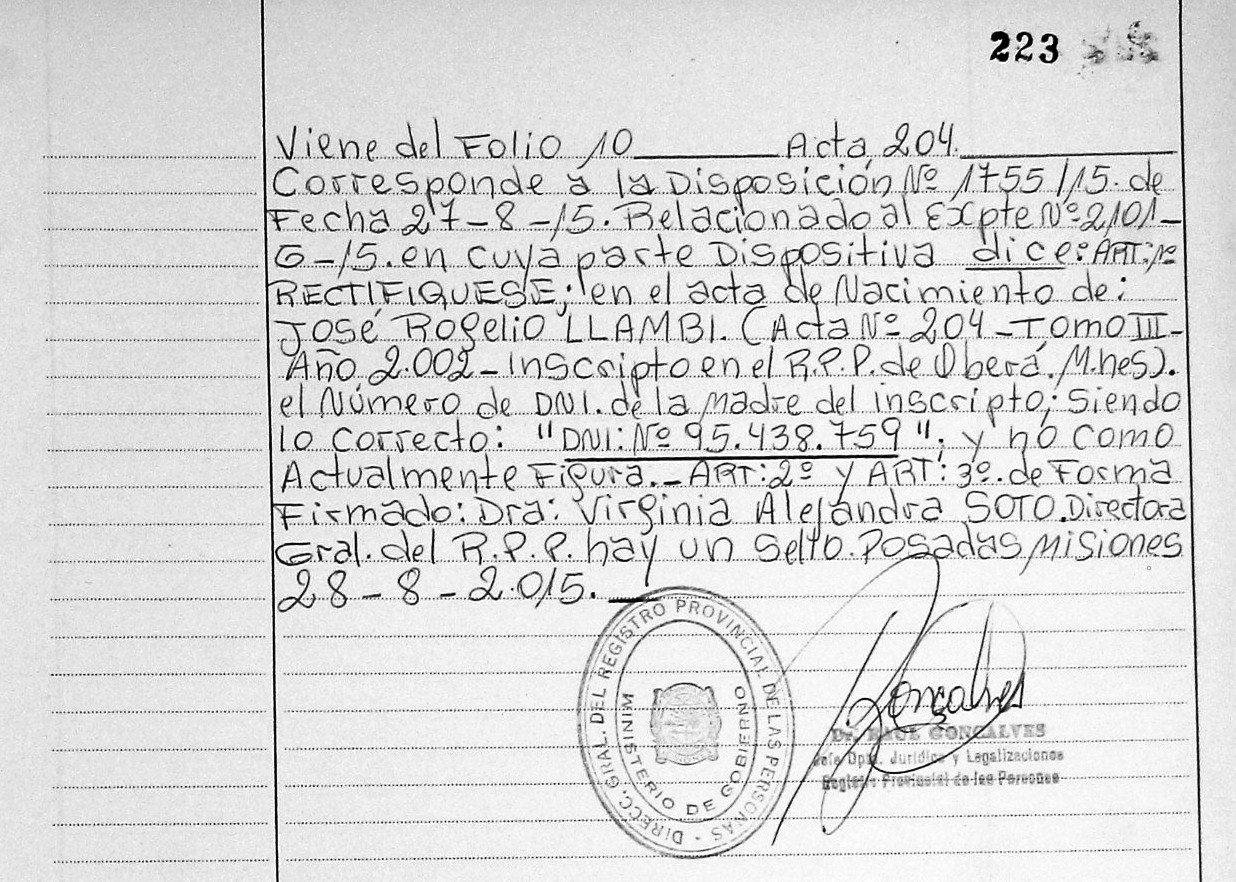 223
Viene del Folio 10 Acta 204.
Corresponde a la Disposición Nº 1755/15. de
Fecha 27-8-15. Relacionado al Expte Nº 2101-
G-15. en cuya parte Dispositiva dice: ART: 1º
RECTIFIQUESE; en el acta de Nacimiento de:
José Rogelio LLAMBI. (Acta Nº 204-Tomo III-
Año 2.002-Inscripto en el R.P.P. de Oberá. M.nes).
el Número de DNI. de la Madre del inscripto; Siendo
lo correcto: "DNI: Nº 95.438.759"; y no como
Actualmente Figura.- ART: 2º y ART: 3º. de Forma
Firmado: Dra: Virginia Alejandra SOTO. Directora
Gral. del R.P.P. hay un Sello. Posadas, Misiones
28-8-2.015.
DIRECC. GRAL. DEL REGISTRO PROVINCIAL DE LAS PERSONAS -
MINISTERIO DE GOBIERNO
Gonçalves
Dr. RAUL GONCALVES
Jefe Dpto. Jurídico y Legalizaciones
Registro Provincial de las Personas